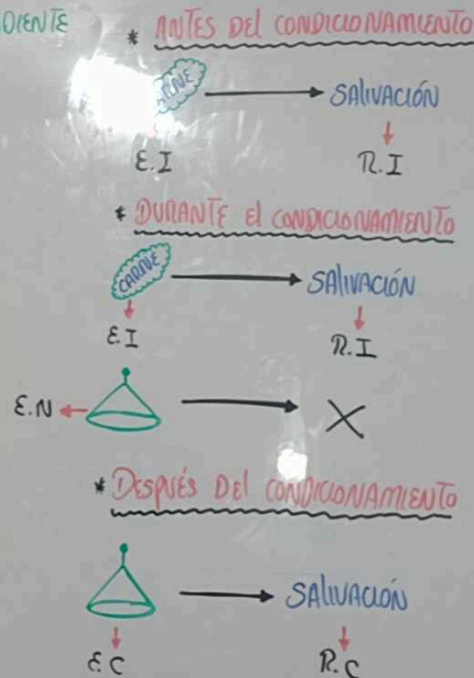 * ANTES DEL CONDICIONAMIENTO
SALIVACIÓN
E.I
R.I
* DURANTE El CONDICIONAMIENTO
CARNE
SALIVACIÓN
E.I
R.I
E.N
X
* DESPUÉS DEl CONDICIONAMIENTO
SALIVACIÓN
E.C
R.C